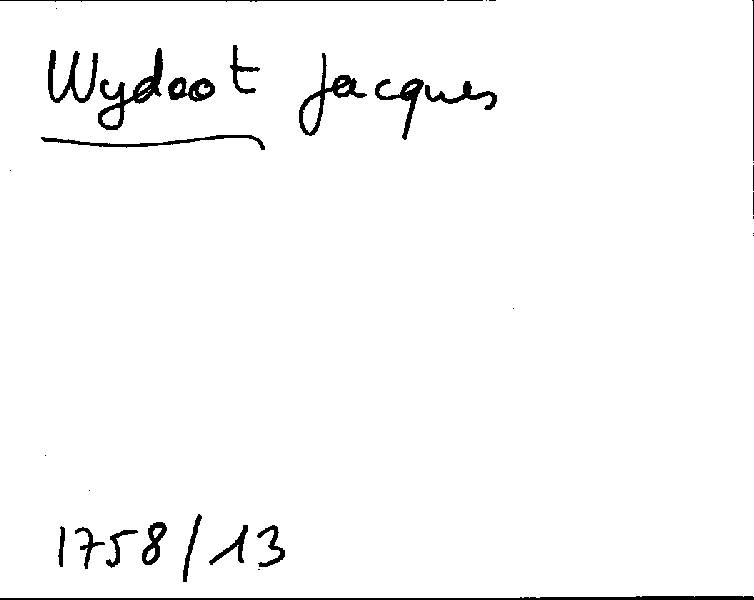 Wydoot Jacques
1758/13